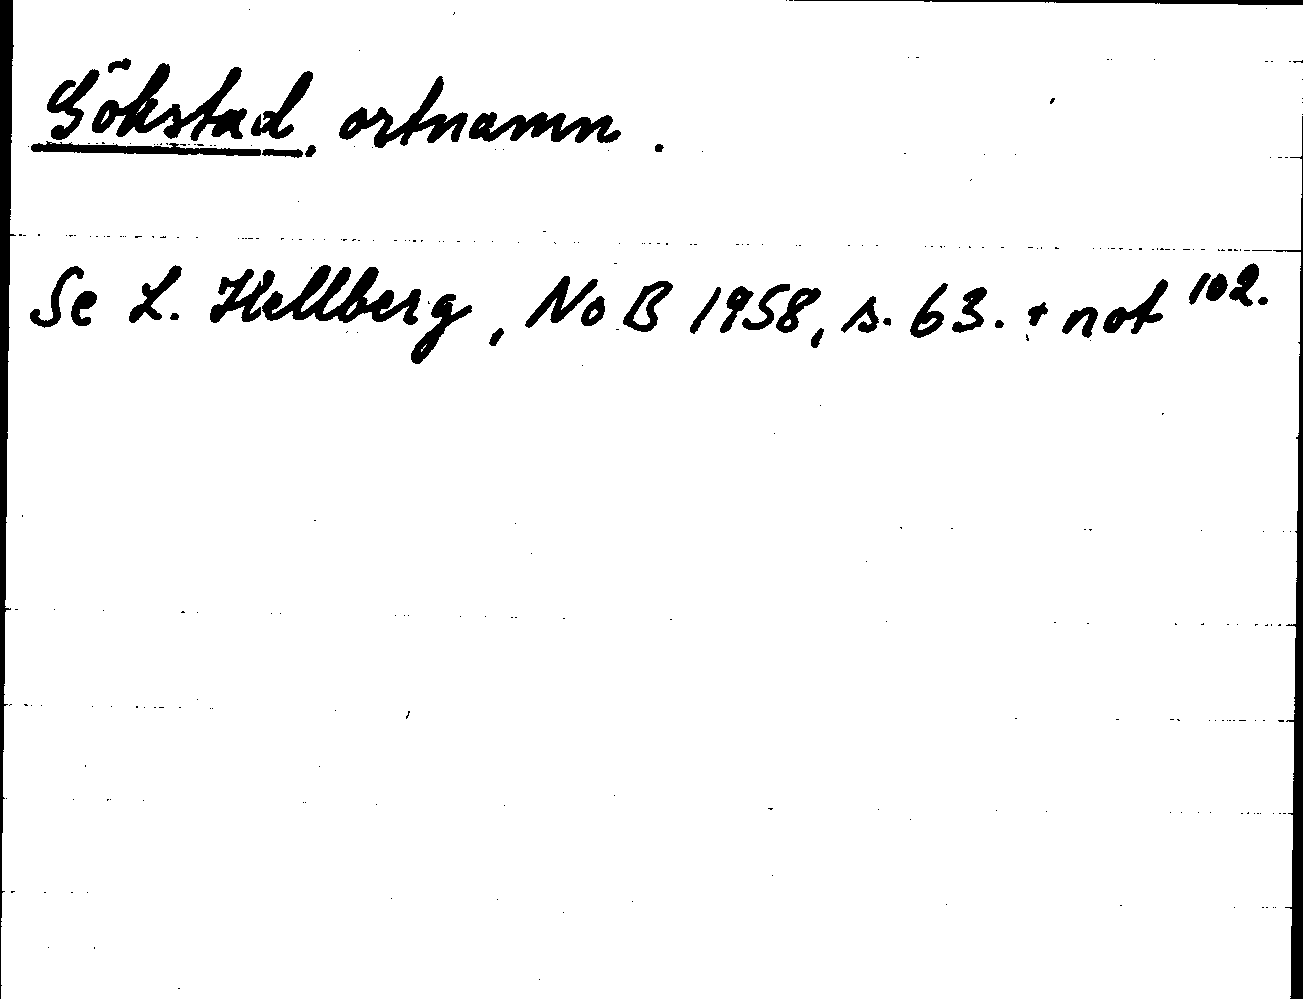 Gökstad, ortnamn.
Se L. Hellberg, NoB 1958, s. 63. + not 102.